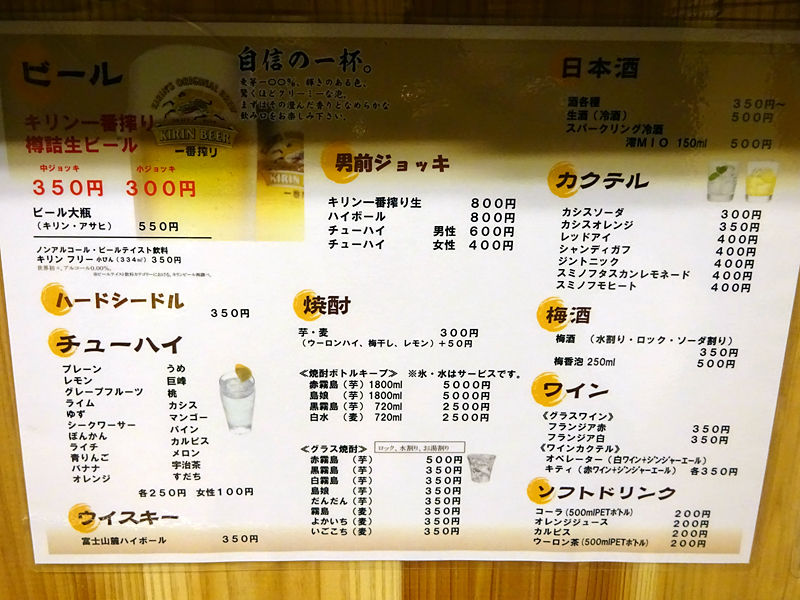 ビール
キリン一番搾り
樽詰生ビール
中ジョッキ 小ジョッキ
350円 300円
ビール大瓶
(キリン・アサヒ) 550円
ノンアルコール・ビールテイスト飲料
キリン フリー 小びん(334㎖) 350円
世界初※、アルコール0.00%。
KIRIN BEER
一番搾り
自信の一杯。
麦芽一〇〇%、輝きのある色、
驚くほどクリーミーな泡。
まずはその澄んだ香りとなめらかな
飲み口をお楽しみ下さい。
ハードシードル 350円
チューハイ
プレーン うめ
レモン 巨峰
グレープフルーツ 桃
ライム カシス
ゆず マンゴー
シークワーサー パイン
ぽんかん カルピス
ライチ メロン
青りんご 宇治茶
バナナ すだち
オレンジ
各250円 女性100円
ウイスキー
富士山麓ハイボール 350円
男前ジョッキ
キリン一番搾り生 800円
ハイボール 800円
チューハイ 男性 600円
チューハイ 女性 400円
焼酎
芋・麦 300円
(ウーロンハイ、梅干し、レモン)+50円
≪焼酎ボトルキープ≫ ※氷・水はサービスです。
赤霧島(芋)1800ml 5000円
島娘 (芋)1800ml 5000円
黒霧島(芋) 720ml 2500円
白水 (麦) 720ml 2500円
≪グラス焼酎≫ ロック、水割り、お湯割り
赤霧島 (芋) 500円
黒霧島 (芋) 350円
白霧島 (芋) 350円
島娘 (芋) 350円
だんだん(芋) 350円
霧島 (麦) 350円
よかいち(麦) 350円
いごこち(麦) 350円
日本酒
酒各種 350円～
生酒(冷酒) 500円
スパークリング冷酒
澪MIO 150ml 500円
カクテル
カシスソーダ 300円
カシスオレンジ 350円
レッドアイ 400円
シャンディガフ 400円
ジントニック 400円
スミノフタスカンレモネード 400円
スミノフモヒート 400円
梅酒
梅酒 (水割り・ロック・ソーダ割り)
350円
梅香泡 250ml 500円
ワイン
《グラスワイン》
フランジア赤 350円
フランジア白 350円
《ワインカクテル》
オペレーター(白ワイン+ジンジャーエール)
キティ(赤ワイン+ジンジャーエール) 各350円
ソフトドリンク
コーラ(500mlPETボトル) 200円
オレンジジュース 200円
カルピス 200円
ウーロン茶(500mlPETボトル) 200円